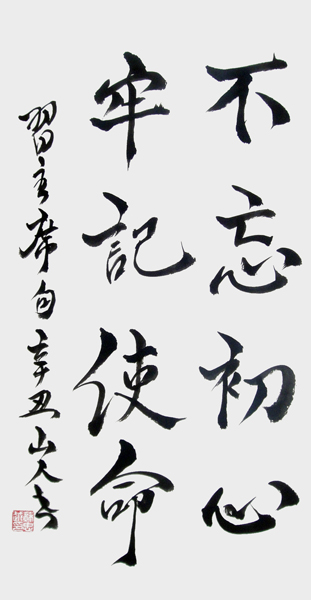 不忘初心
牢記使命
習主席句辛丑山人書